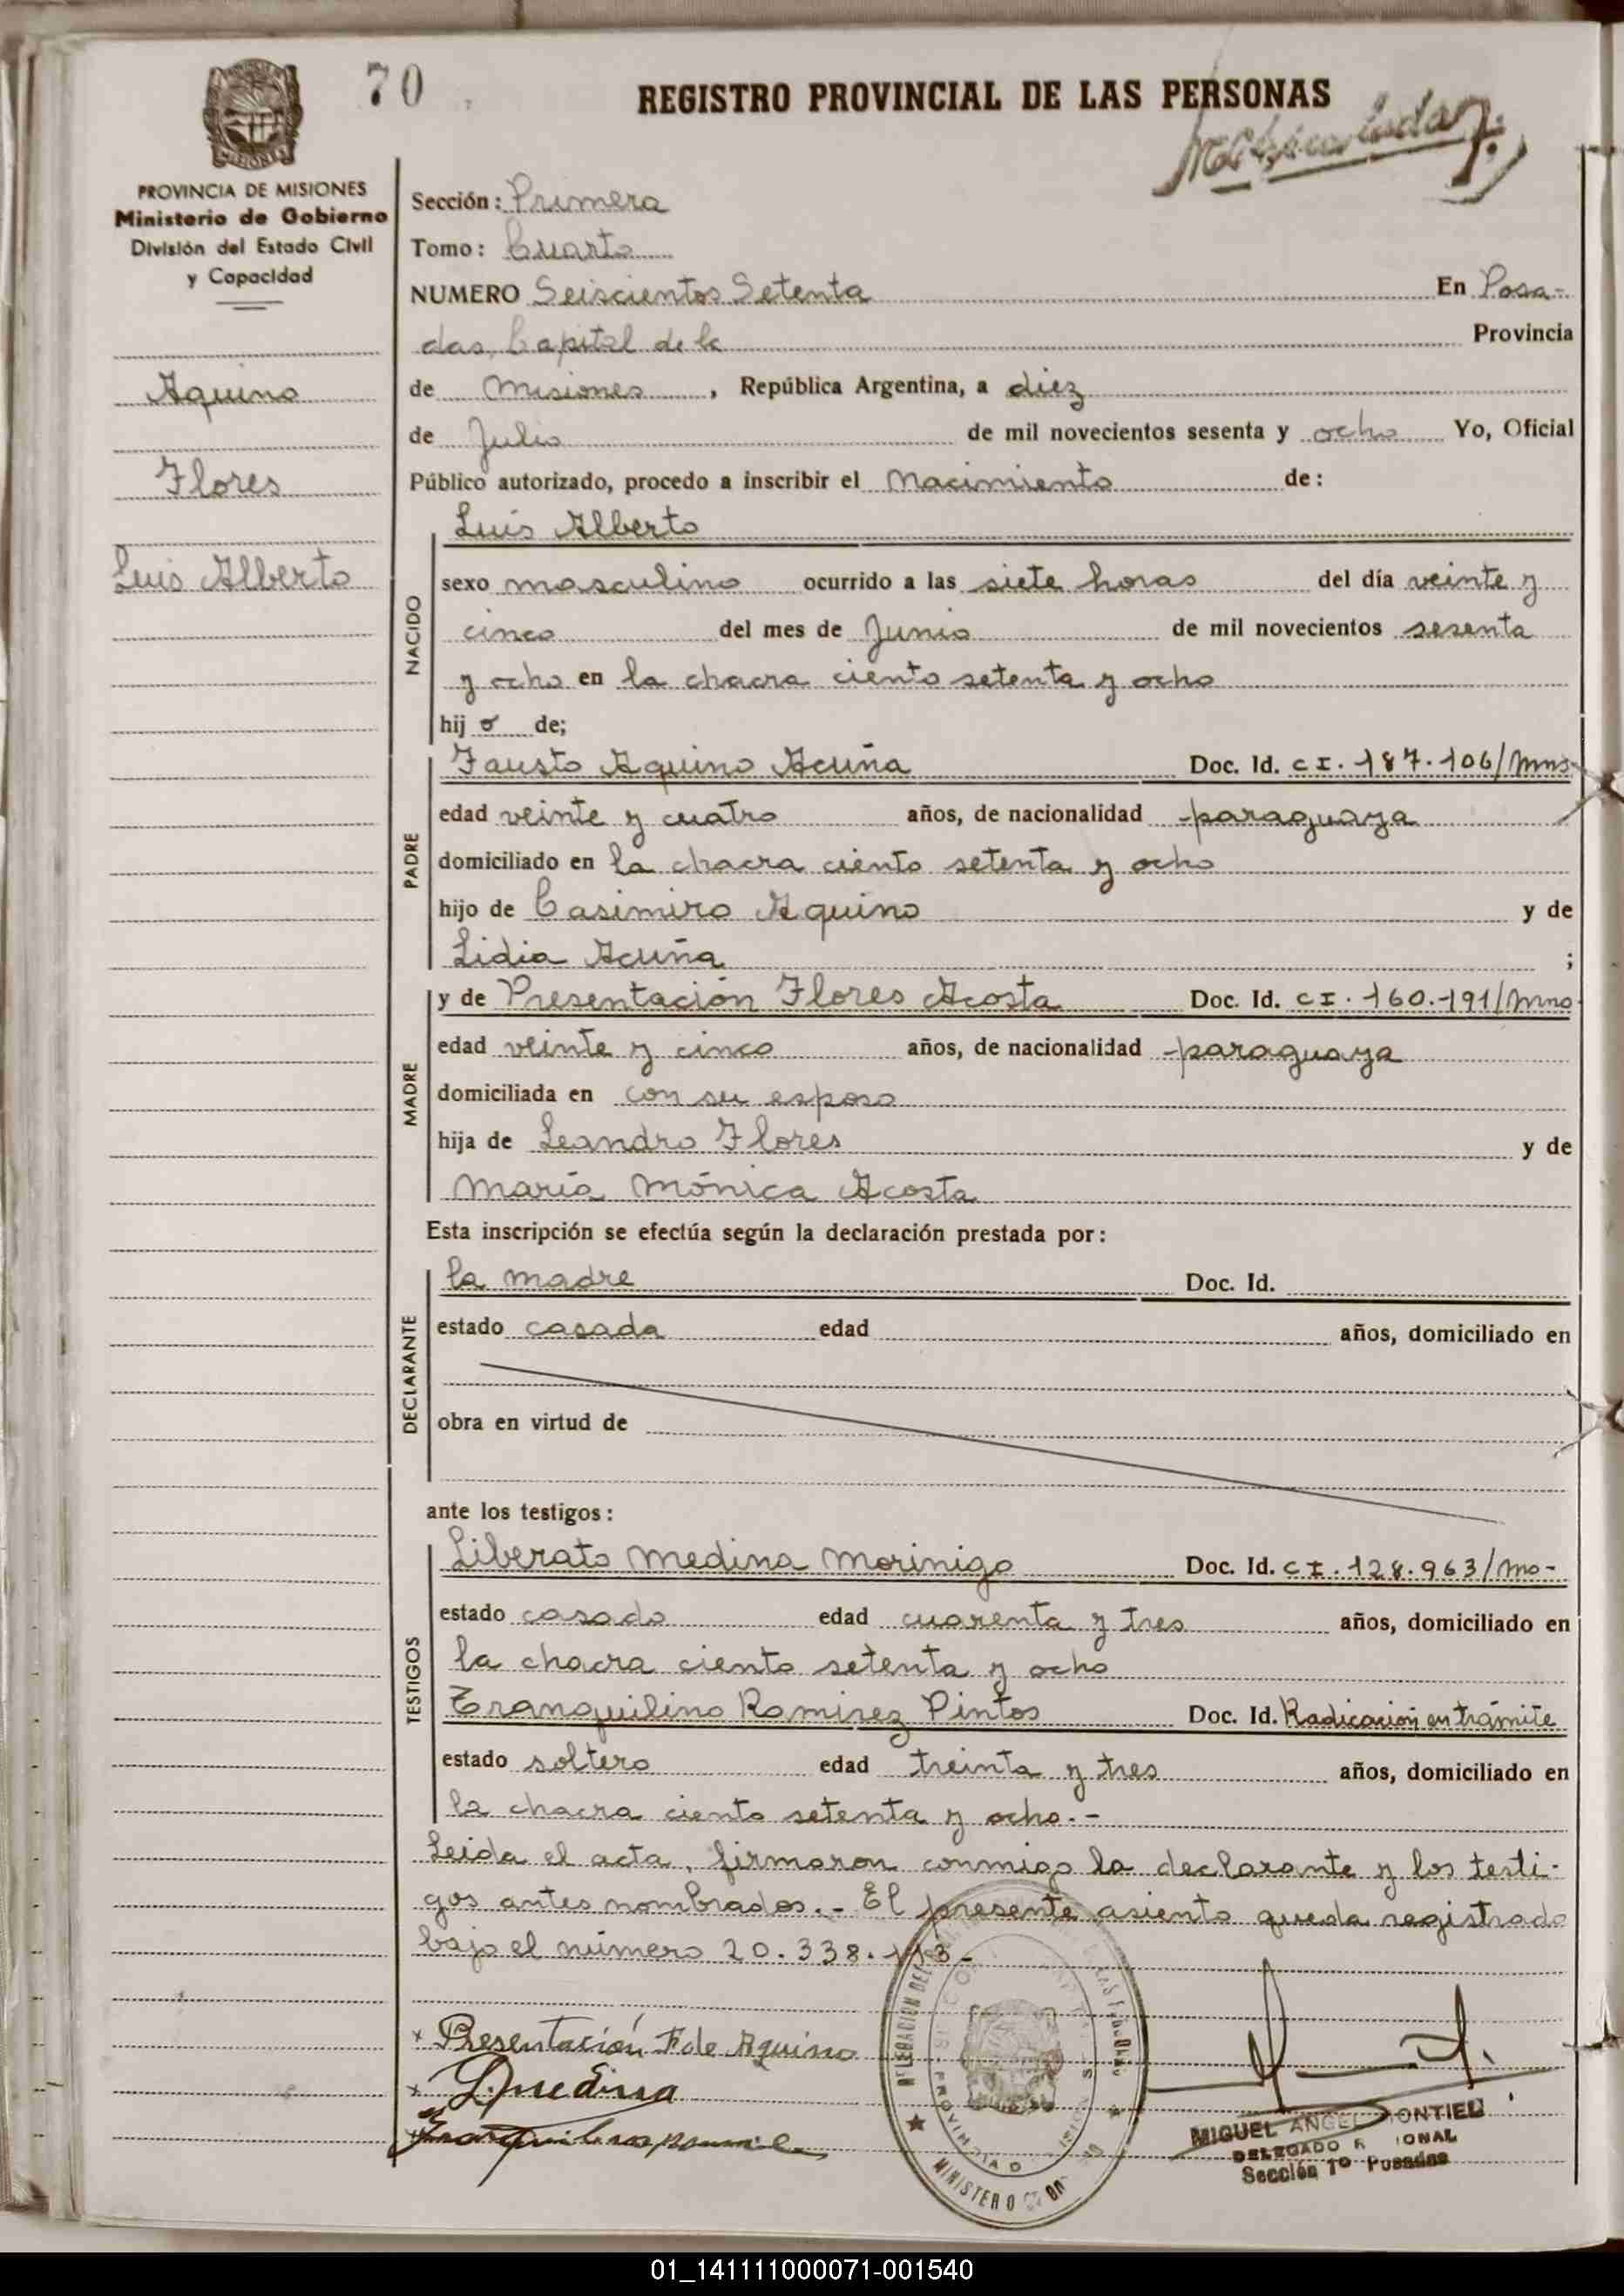 70
REGISTRO PROVINCIAL DE LAS PERSONAS
PROVINCIA DE MISIONES
Ministerio de Gobierno
División del Estado Civil
y Capacidad
Aquino
Flores
Luis Alberto
Sección: Primera
Tomo: Cuarto
NUMERO Seiscientos Setenta En Posa-
das, Capital de la Provincia
de Misiones, República Argentina, a diez
de Julio de mil novecientos sesenta y ocho Yo, Oficial
Público autorizado, procedo a inscribir el Nacimiento de:
Luis Alberto
NACIDO
sexo masculino ocurrido a las siete horas del día veinte y
cinco del mes de Junio de mil novecientos sesenta
y ocho en la chacra ciento setenta y ocho
hij o de;
PADRE
Fausto Aquino Acuña Doc. Id. CI. 187.106/Mns
edad veinte y cuatro años, de nacionalidad paraguaya
domiciliado en la chacra ciento setenta y ocho
hijo de Casimiro Aquino y de
Lidia Acuña ;
MADRE
y de Presentación Flores Acosta Doc. Id. CI. 160.191/Mns
edad veinte y cinco años, de nacionalidad paraguaya
domiciliada en con su esposo
hija de Leandro Flores y de
María Mónica Acosta
Esta inscripción se efectúa según la declaración prestada por:
DECLARANTE
la madre Doc. Id.
estado casada edad años, domiciliado en
obra en virtud de
ante los testigos:
TESTIGOS
Liberato Medina Morinigo Doc. Id. CI. 128.963/Mo-
estado casado edad cuarenta y tres años, domiciliado en
la chacra ciento setenta y ocho
Tranquilino Ramirez Pintos Doc. Id. Radicación en trámite
estado soltero edad treinta y tres años, domiciliado en
la chacra ciento setenta y ocho.-
Leida el acta, firmaron conmigo la declarante y los testi-
gos antes nombrados.- El presente asiento queda registrado
bajo el número 20.338.113-
Presentación F de Aquino
L medina
MIGUEL ANGEL MONTIEL
DELEGADO
Sección 1º Posadas
01_141111000071-001540